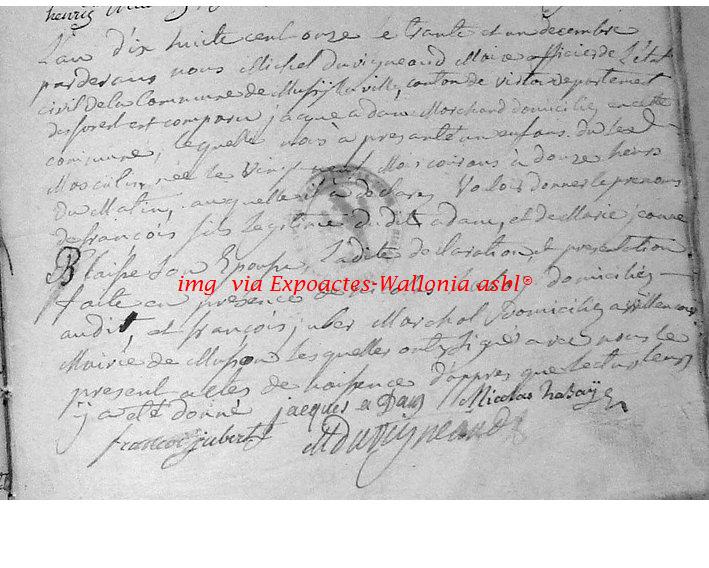 henry
L'an dix huite cent onze le trante et un decembre
par devans nous Michel duvigneaud Maire officier de L'état
civil de la Commune de Mussy la ville, canton de virton departement
des forest est comparu jacque adam Marchand domicilié en cette
commune, lequelle nous à presanté un enfans du sexe
Masculin, née le Vingt neuf Mois courans à douze heurs
du Matin, auquelle il à déclaré Vouloir donner le prenoms
de françois fils legitime du dit adam, et de Marie jeanne
Blaise son Epouse, Ladite declaration et presentation
faite en presence de Nicolas habay domicilié
audit, et françois juber Marchal Domicilié a willancour
Mairie de Musson lesquelles ont signé avec nous le
present actes de naissence d'apres que lecture leurs
y a été donné jacques adam Nicolas habaÿ
francoi jubert MDuvigneaud
img via Expoactes-Wallonia asbl©